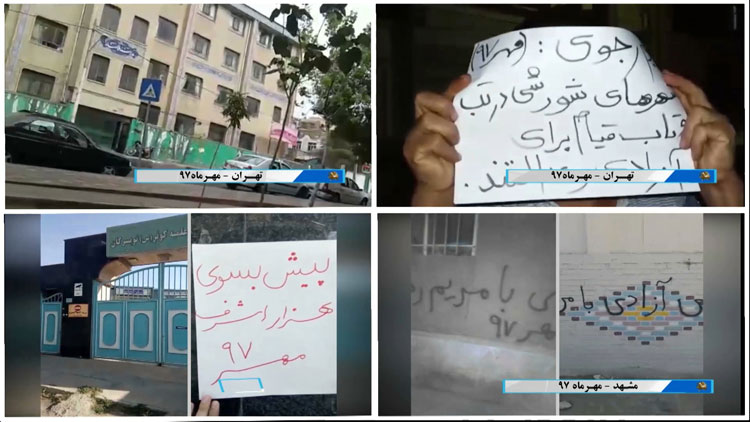 تهران - مهرماه۹۷
جوی : (مهر ۹۷)
شهرهای شورشی در تب
تاب قیام برای
تهران - مهرماه۹۷
پیش بسوی
هزار اشرف
۹۷
مهر
ی با مریم
مهر ۹۷
ی آزادی با مر
مشهد - مهرماه ۹۷